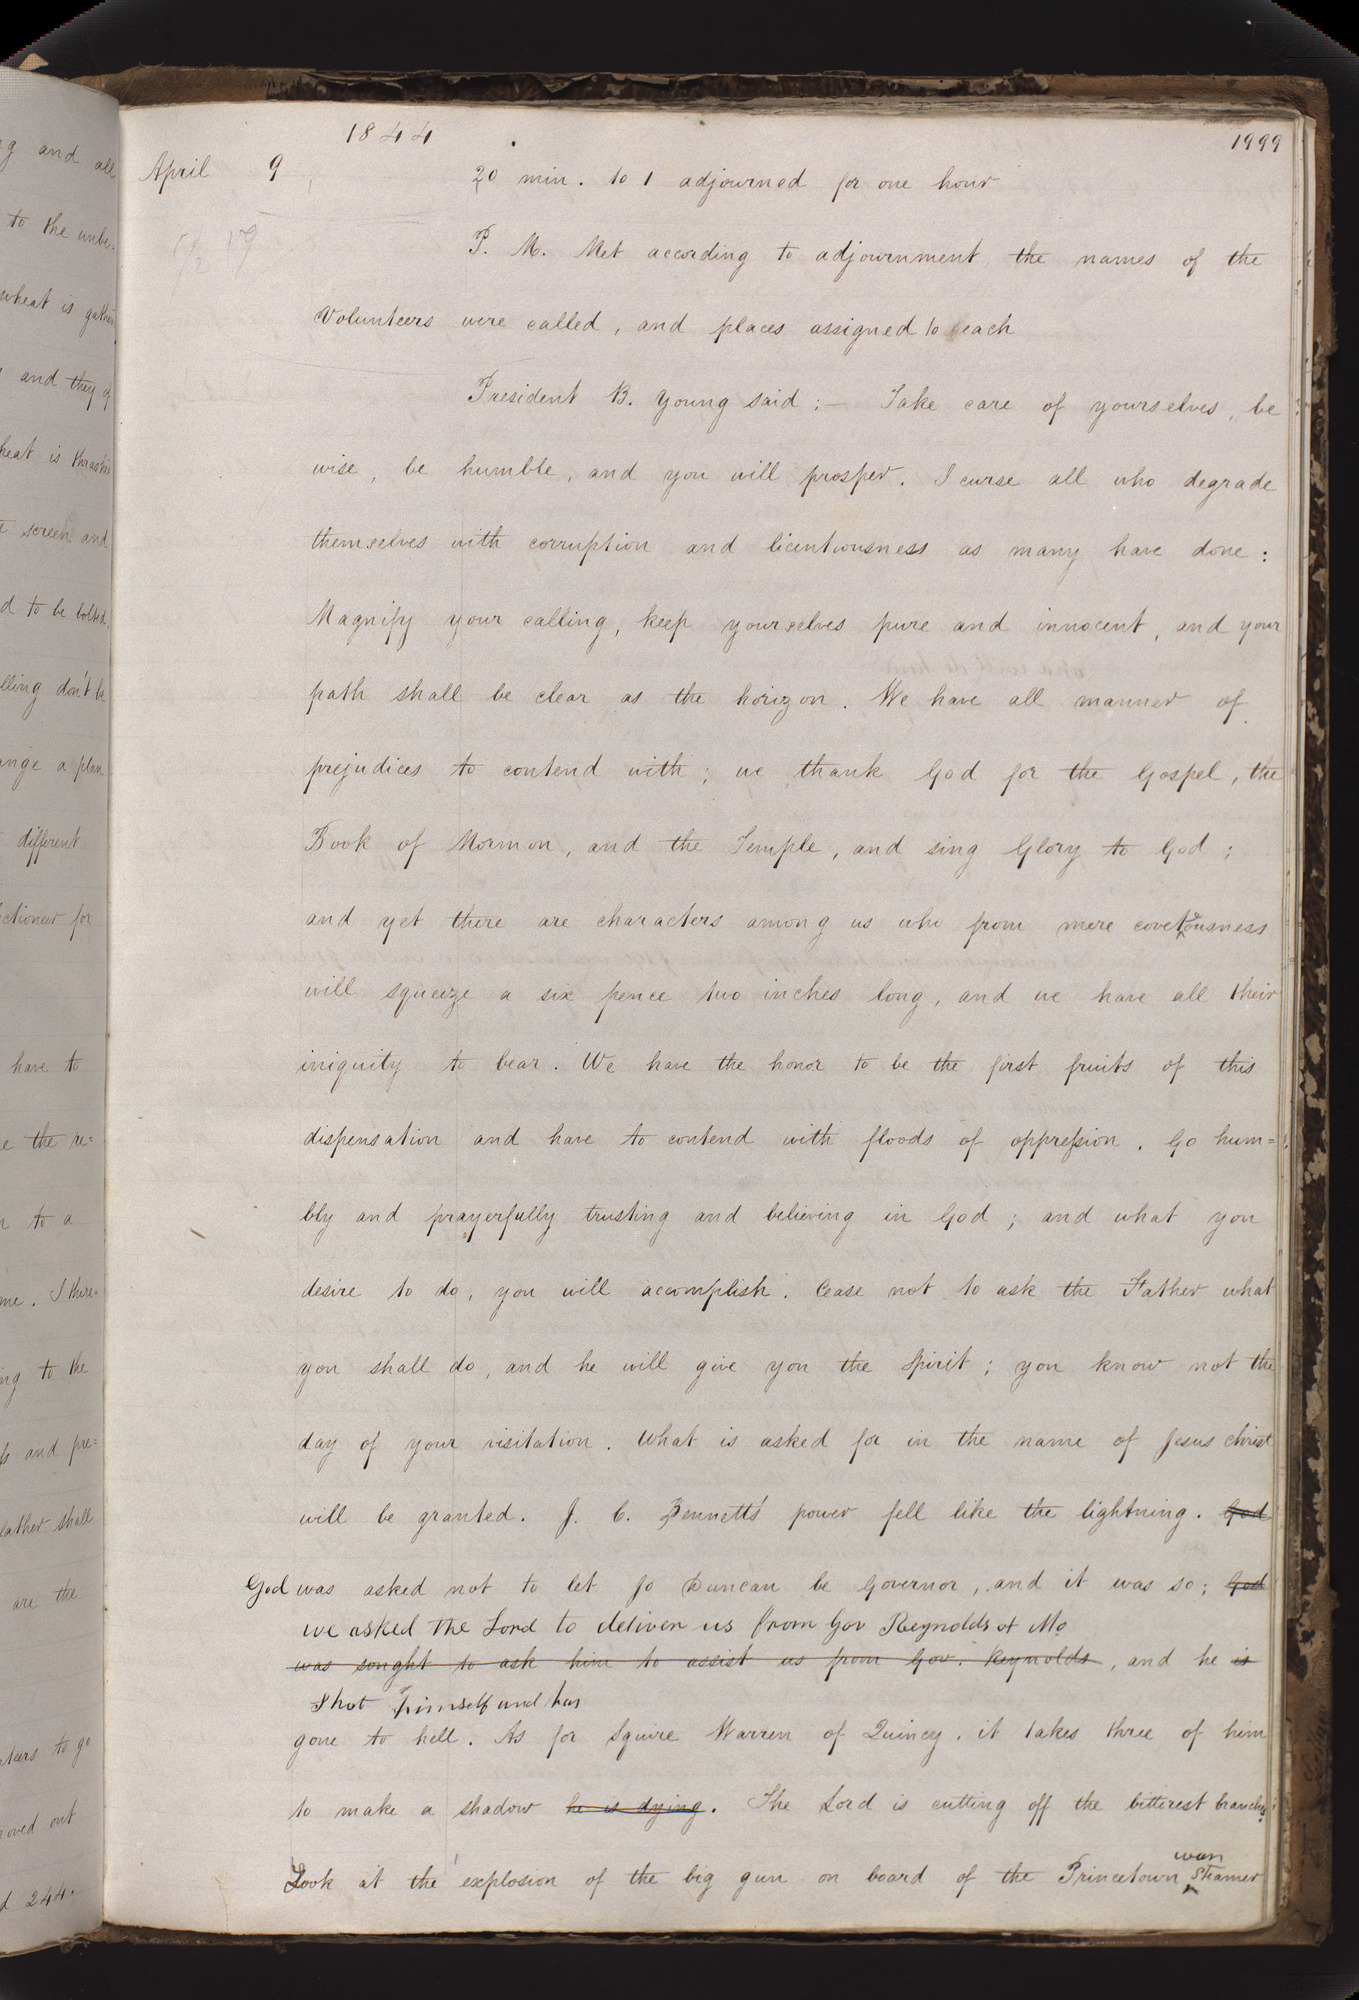 1844
1999
April 9
20 min. to 1 adjourned for one hour
P. M. Met according to adjournment the names of the
volunteers were called, and places assigned to each
President B. Young said :— Take care of yourselves, be
wise, be humble, and you will prosper. I curse all who degrade
themselves with corruption and licentiousness as many have done:
Magnify your calling, keep yourselves pure and innocent, and your
path shall be clear as the horizon. We have all manner of
prejudices to contend with; we thank God for the Gospel, the
Book of Mormon, and the Temple, and sing Glory to God;
and yet there are characters among us who from mere covetousness
will squeeze a six pence two inches long, and we have all their
iniquity to bear. We have the honor to be the first fruits of this
dispensation and have to contend with floods of oppression. Go hum=
bly and prayerfully trusting and believing in God; and what you
desire to do, you will accomplish. Cease not to ask the Father what
you shall do, and he will give you the spirit; you know not the
day of your visitation. What is asked for in the name of Jesus christ
will be granted. J. C. Bennett's power fell like the lightning. God
God was asked not to let Jo Duncan be Governor, and it was so; God
we asked the Lord to deliver us from Gov Reynolds of Mo
was sought to ask him to assist us from Gov. Reynolds, and he is
shot himself and has
gone to hell. As for Squire Warren of Quincy, it takes three of him
to make a shadow he is dying. The Lord is cutting off the bitterest branches
war
Look at the explosion of the big gun on board of the Princetown steamer
g and all
to the unbe=
wheat is gather
and they of
heat is thrashed
screen and
d to be bolted,
lling don't be
ange a plan
different
ctioneer for
have to
e the re=
to a
me. I there=
ng to the
and pre=
father shall
are the
teers to go
oved out
d 244.